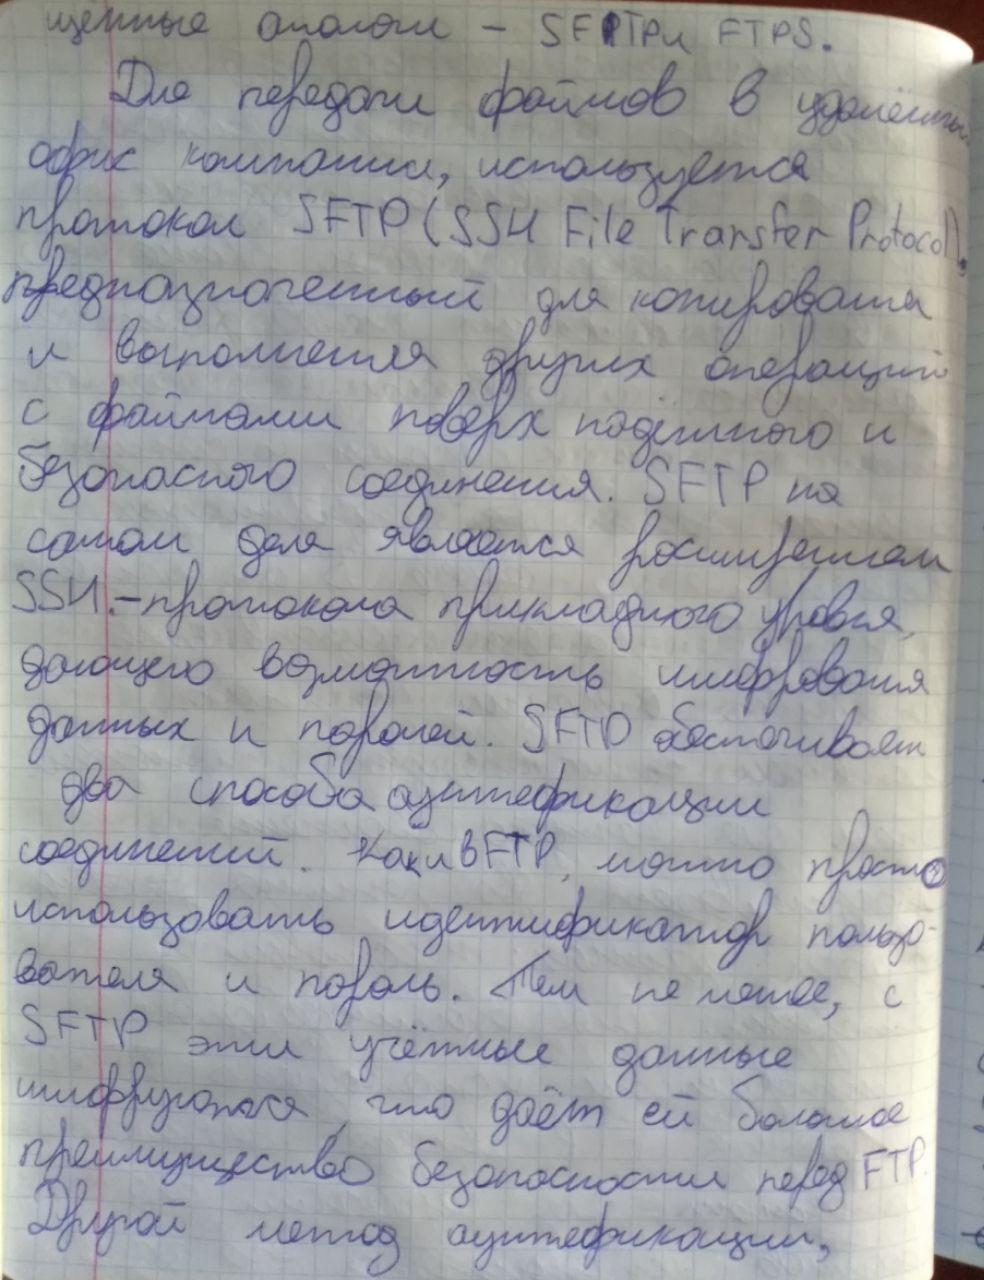 щенные аналоги – SFTP и FTPS.
Для передачи файлов в удалённый
офис компании, используется
протокол SFTP (SSH File Transfer Protocol),
предназначенный для копирования
и выполнения других операций
с файлами поверх надёжного и
безопасного соединения. SFTP на
самом деле является расширением
SSH - протокола прикладного уровня,
дающего возможность шифрования
данных и паролей. SFTP обеспечивает
два способа аутефикации
соединений. Как и в FTP, можно просто
использовать идентификатор пользо-
вателя и пароль. Тем не менее, с
SFTP эти учётные данные
шифруются, что даёт ей большое
преимущество безопасности перед FTP.
Другой метод аутефикации,